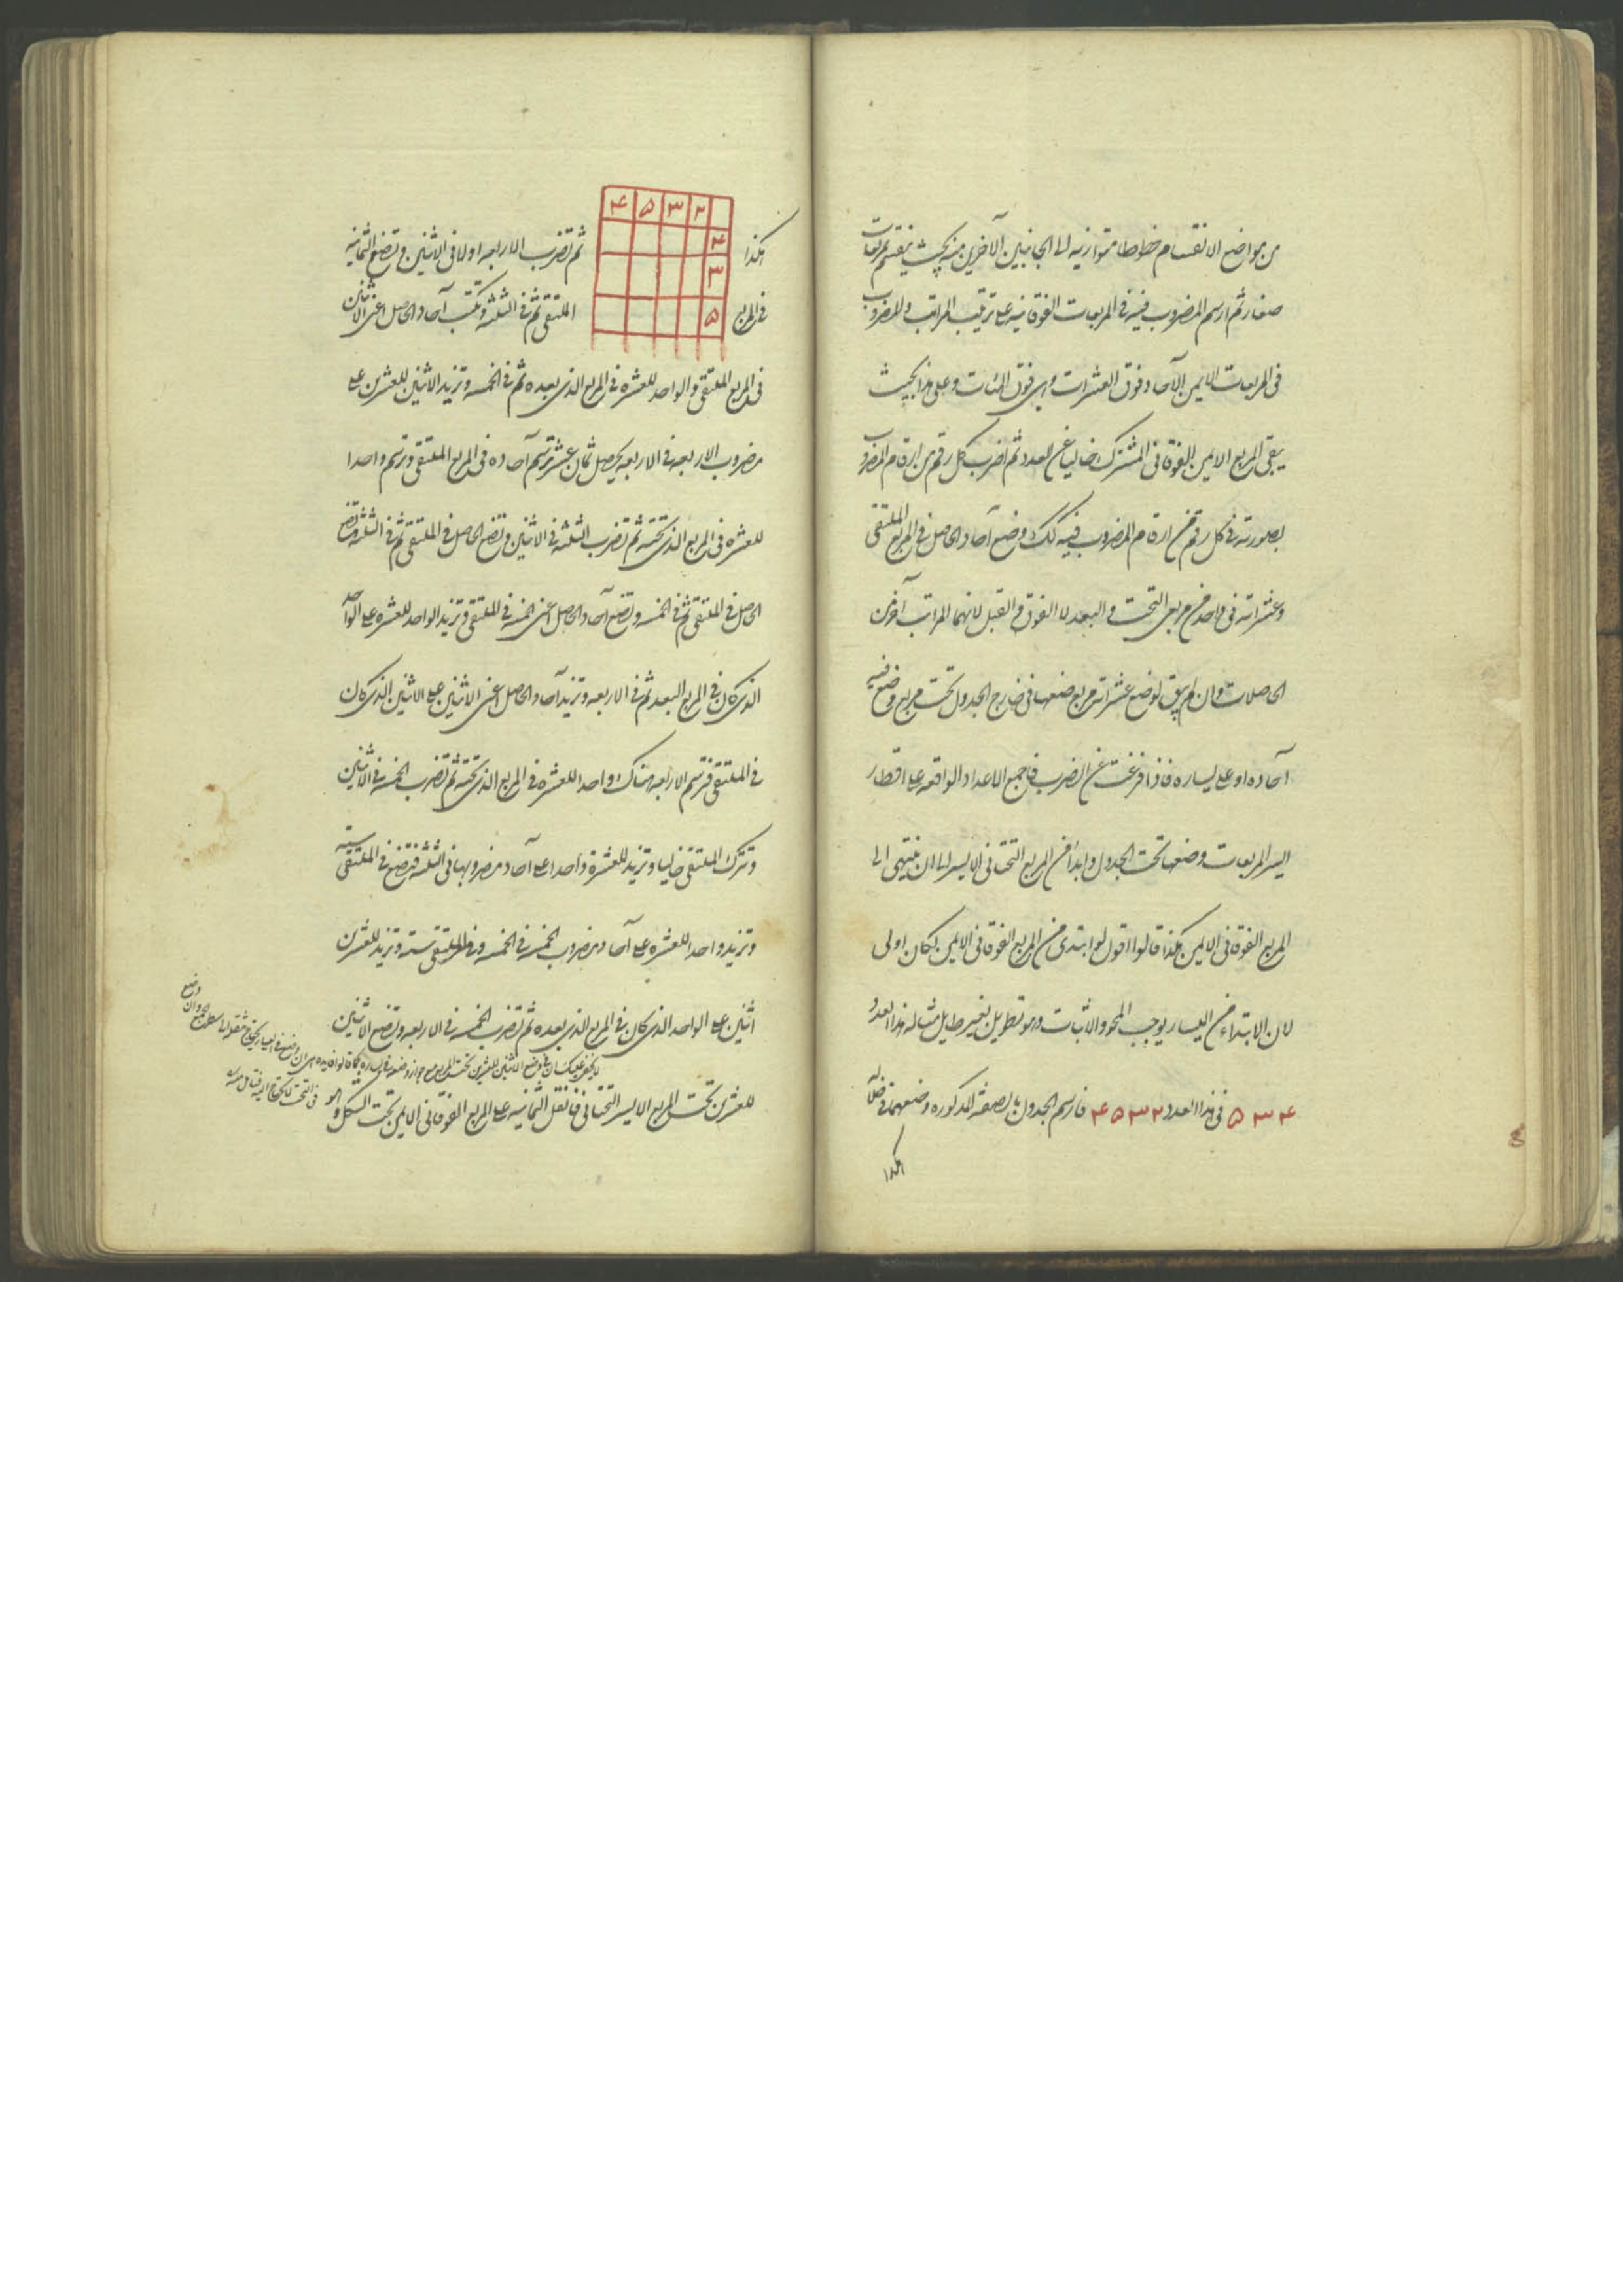 من مواضع الانقسام خطوطا متوازية الى الجانبين الآخرين منه بحيث ينقسم بمربعات
صغار ثم ارسم المضروب فيه فى المربعات الفوقانية على ترتيب المراتب والمضروب
فى المربعات الايمن الآحاد فوق العشرات وهى فوق المئات وعلى هذا بحيث
يبقى المربع الايمن الفوقانى المشترك خاليا عن العدد ثم اضرب كل رقم من ارقام المضروب
بصورته فى كل رقم من ارقام المضروب فيه كك وضع آحاد الحاصل فى المربع الملتقى
وعشراته فى واحد من مربعى التحت والبعد لا الفوق والقبل لانهما المراتب آخرين
الحاصلات وان لم يبق لوضع عشراته مربع ضعها فى خارج الجدول تحت مربع وضع فيه
آحاده او على يساره فاذا فرغت عن الضرب فاجمع الاعداد الواقعه على اقطار
ايسر المربعات وضعها تحت الجدول وابدأ من المربع التحتانى الايسر الى ان ينتهى الى
المربع الفوقانى الايمن هكذا قالوا اقول لو ابتدى من المربع الفوقانى الايمن لكان اولى
لان الابتداء من اليسار يوجب المحو والاثبات وهو تطويل بغير طايل مثاله هذا العدد
۴ ۳ ۵ فى هذا العدد ۲ ۳ ۵ ۴ فارسم الجدول بالصفة المذكوره وضعهما
هكذا
هكذا ثم تضرب الاربعه اولا فى الاثنين وتضع الثمانيه
۲ ۳ ۵ ۴
۴
۳
۵
فى المربع الملتقى ثم فى الثلثه وتكتب آحاد الحاصل اعنى الاثنين
فى المربع الملتقى والواحد للعشره فى المربع الذى بعده ثم فى الخمسه وتزيد الاثنين للعشرين على
مضروب الاربعه فى الاربعه يحصل ثمان عشر ترسم آحاده فى المربع الملتقى وترسم واحدا
للعشره فى المربع الذى تحته ثم تضرب الثلثه فى الاثنين وتضع الحاصل فى الملتقى ثم فى الثلثه وتضع
الحاصل فى الملتقى ثم فى الخمسه وتضع آحاد الحاصل اعنى الخمسه فى الملتقى وتزيد الواحد للعشره على الواحد
الذى كان فى المربع البعد ثم فى الاربعه وتزيد آحاد الحاصل اعنى الاثنين على الاثنين الذى كان
فى الملتقى فترسم الاربعه هناك واحدا للعشره فى المربع الذى تحته ثم تضرب الخمسه فى الاثنين
وتترك الملتقى خاليا وتزيد للعشرة واحدا على آحاد مضروبها فى الثلثه فتضع فى الملتقى سته
وتزيد واحدا للعشره على آحاد مضروب الخمسه فى الخمسه وفى الملتقى سته وتزيد للعشرين
اثنين على الواحد الذى كان فى المربع الذى بعده ثم تضرب الخمسه فى الاربعه وتضع الاثنين
للعشرين تحت المربع الايسر التحتانى فانقل الثمانيه على المربع الفوقانى الايمن تحت الشكل والـ